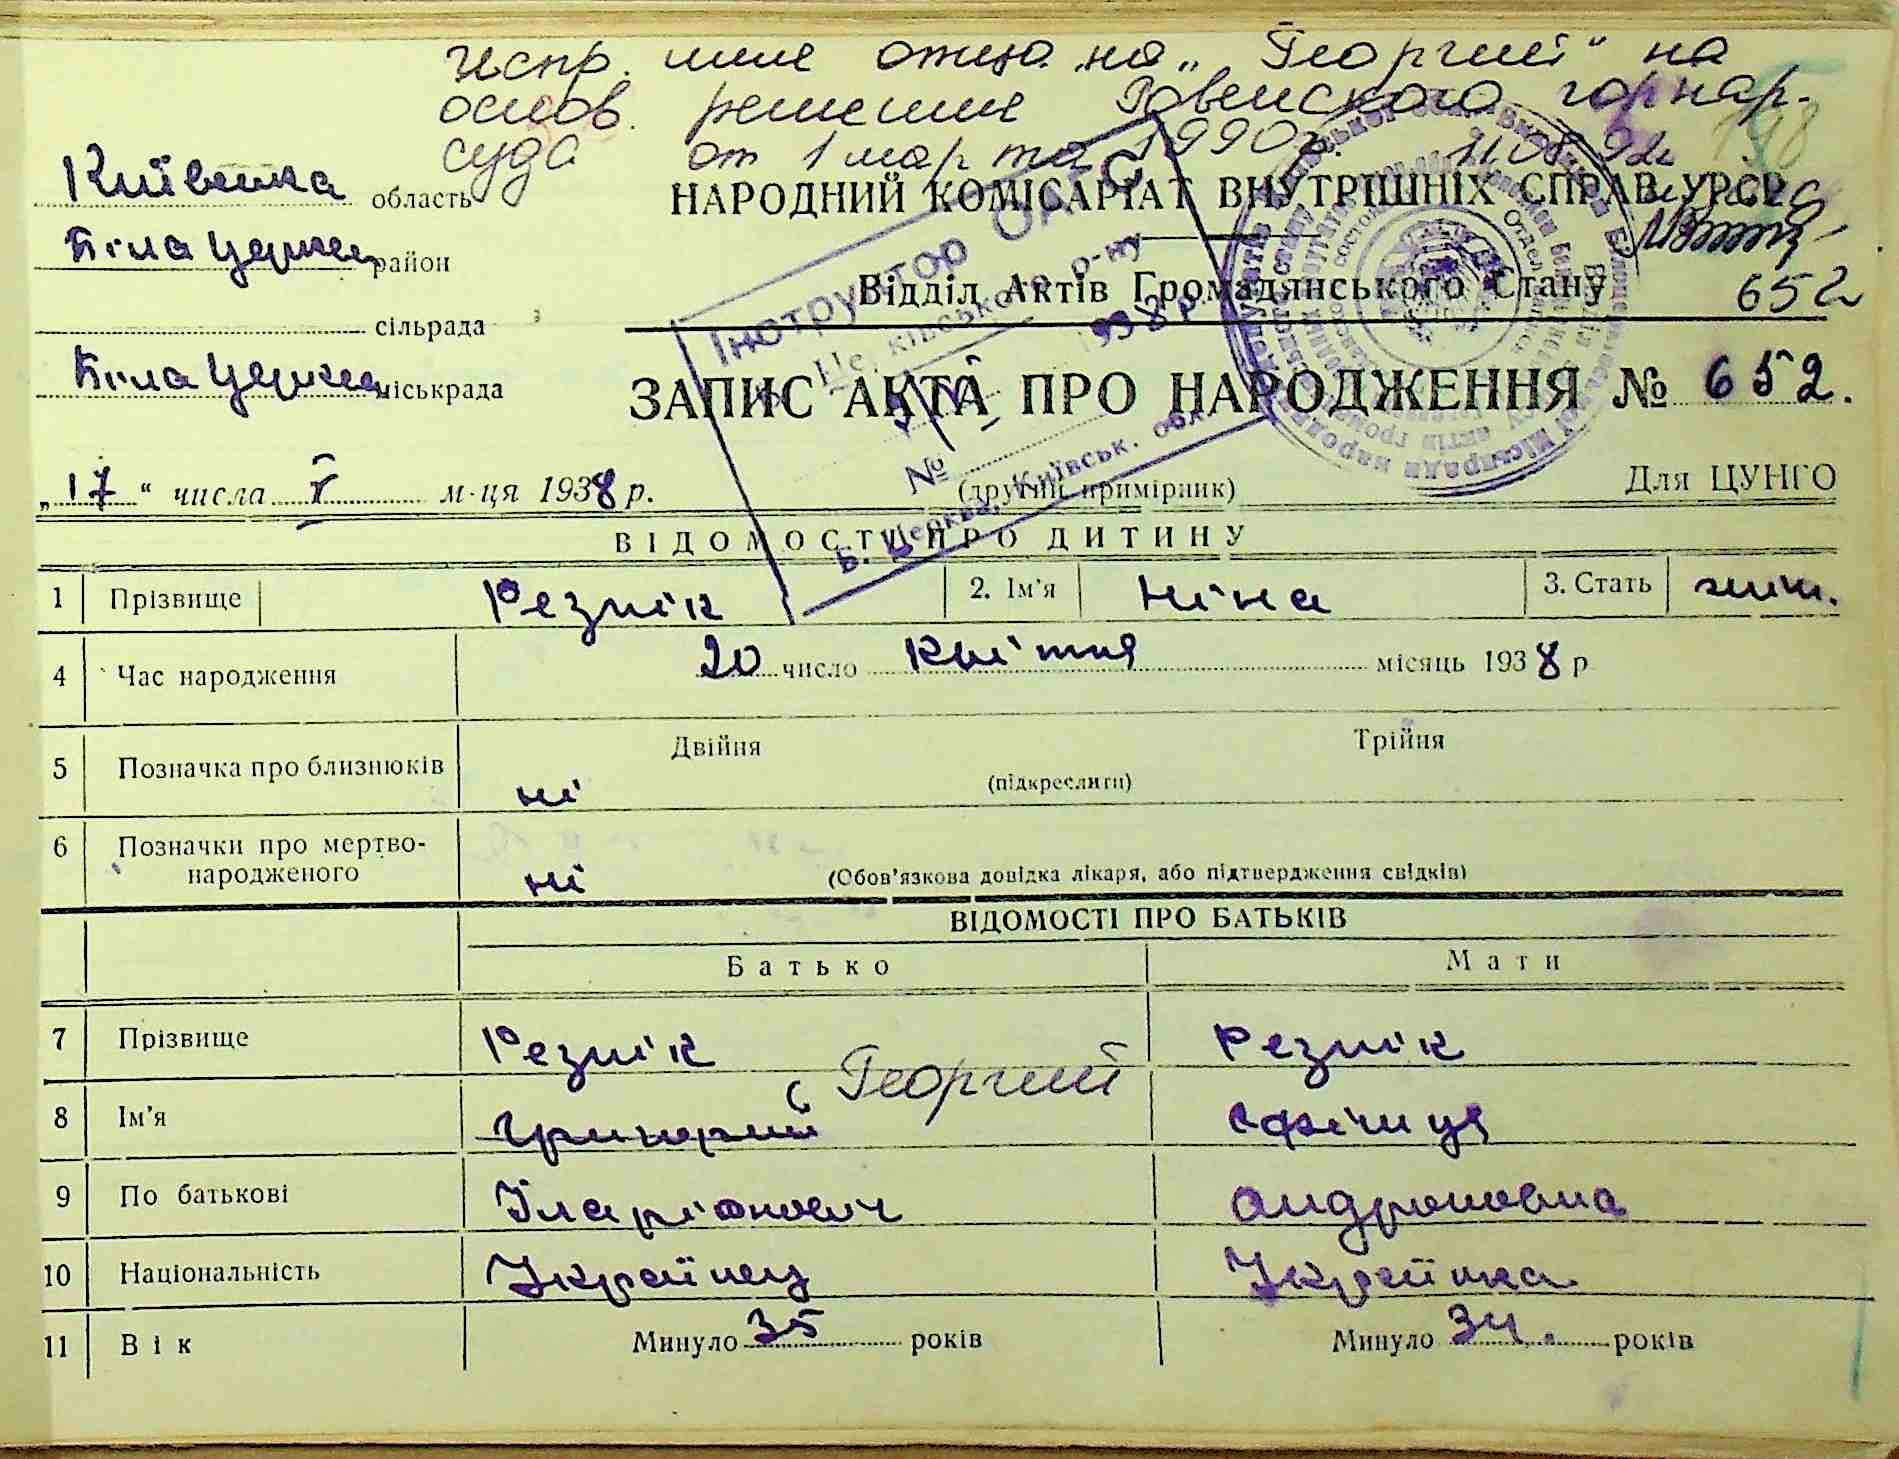 испр. имя отца на „Георгий“ на
основ. решения Ровенского горнар-
суда от 1 марта 1990г. 11.08.92г.
Київська область
Біла Церква район
сільрада
Біла Церква міськрада
НАРОДНИЙ КОМІСАРІАТ ВНУТРІШНІХ СПРАВ УРСР
Відділ Актів Громадянського Стану
652
ЗАПИС АКТА ПРО НАРОДЖЕННЯ № 652.
„17“ числа V м-ця 1938 р.
(другий примірник)
Для ЦУНГО
Інструктор ОАГС
1938 р.
№
Б. Церква, Київськ. обл.
ВІДОМОСТІ ПРО ДИТИНУ
1 Прізвище Резнік 2. Ім'я Ніна 3. Стать жін.
4 Час народження 20 число Квітня місяць 1938 р
5 Позначка про близнюків ні Двійня Трійня
(підкреслити)
6 Позначки про мертво-
народженого ні (Обов'язкова довідка лікаря, або підтвердження свідків)
ВІДОМОСТІ ПРО БАТЬКІВ
Батько Мати
7 Прізвище Резнік Резнік
8 Ім'я Григорий Георгий
9 По батькові Іларіонович Андроновна
10 Національність Українец Українка
11 Вік Минуло 35 років Минуло 34. років